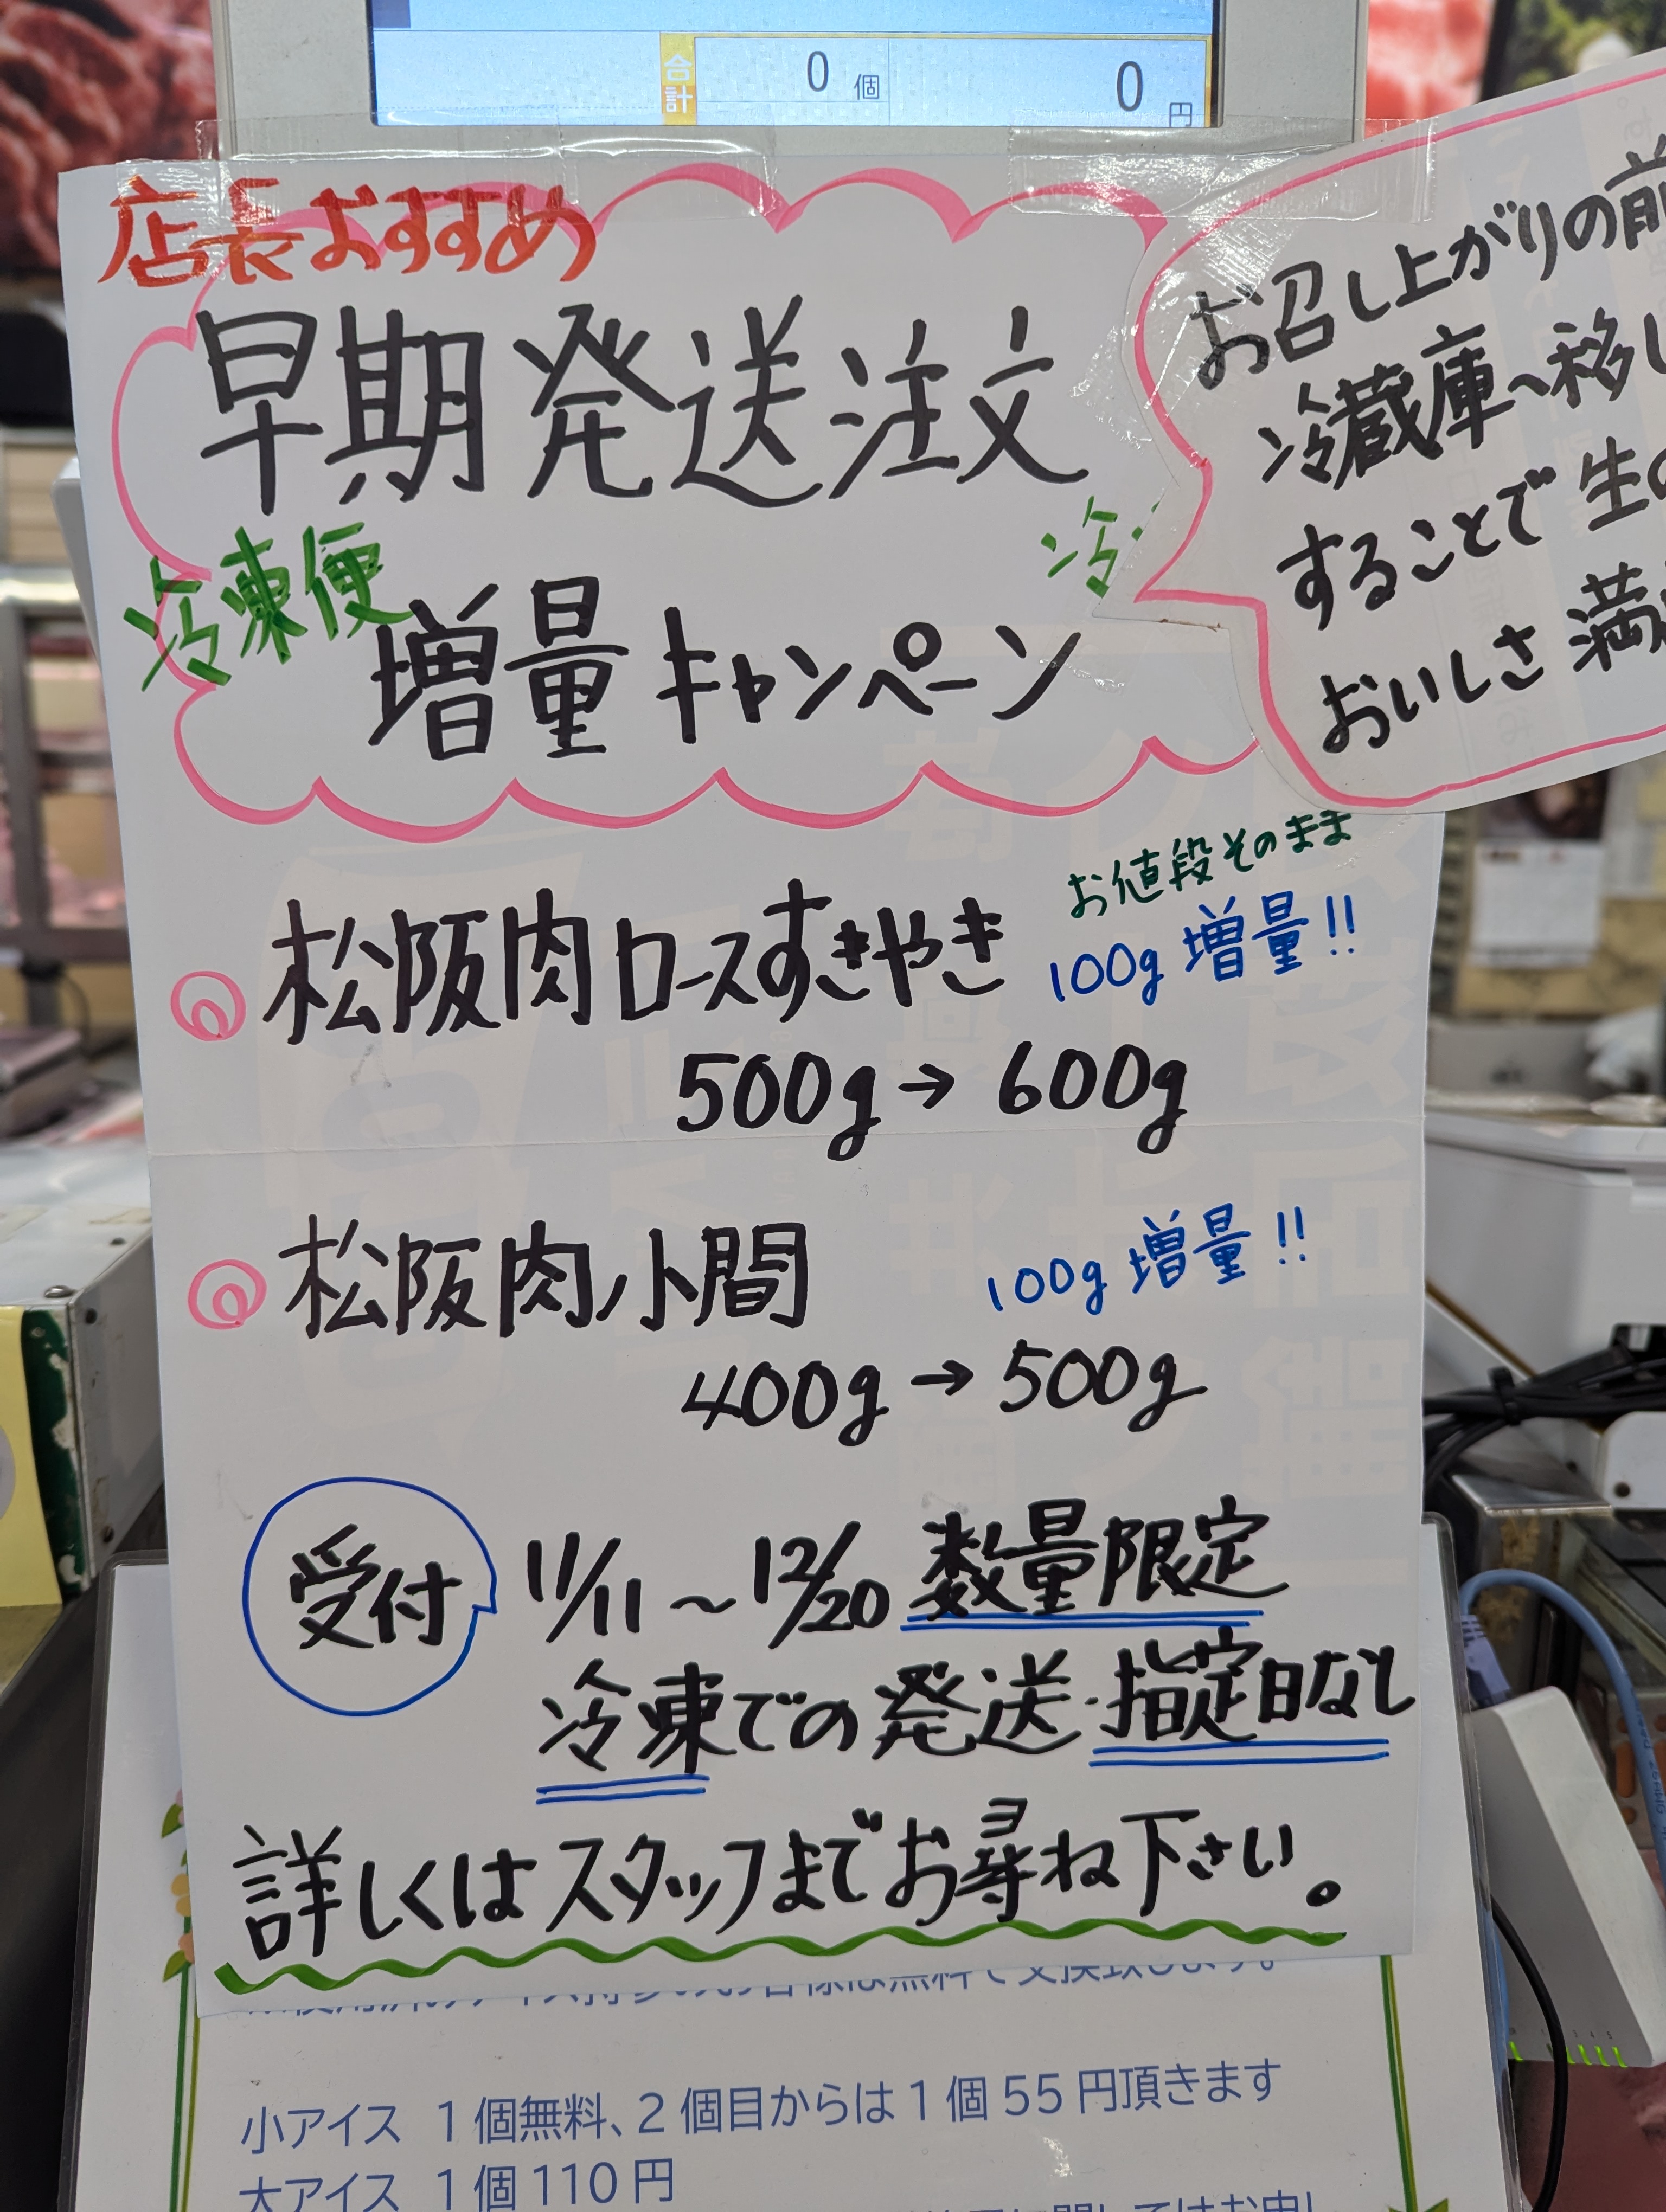 合計 0個 0円
店長おすすめ
早期発送注文
冷凍便
増量キャンペーン
冷
お召し上がりの前
冷蔵庫へ移し
することで生の
おいしさ満
◎松阪肉ロースすきやき
お値段そのまま
100g増量!!
500g→600g
◎松阪肉小間
100g増量!!
400g→500g
受付 11/11～12/20 数量限定
冷凍での発送・指定日なし
詳しくはスタッフまでお尋ね下さい。
小アイス 1個無料、2個目からは1個55円頂きます
大アイス 1個110円